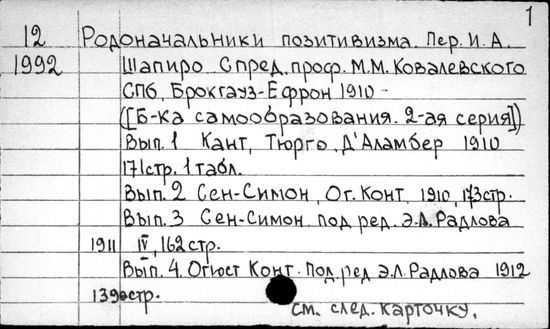 1
12 Родоначальники позитивизма. Пер. И. А.
1992 Шапиро С пред. проф. М.М. Ковалевского
СПб, Брокгауз-Ефрон 1910 -
([Б-ка самообразования. 2-ая серия])
Вып. 1 Кант, Тюрго, Д'Аламбер 1910
171стр. 1 табл.
Вып. 2 Сен-Симон, Ог. Конт, 1910, 173стр.
Вып. 3 Сен-Симон под ред. Э.Л. Радлова
1911 IV, 162 стр.
Вып. 4. Огюст Конт. Под ред Э.Л. Радлова 1912
139 стр.
см. след. карточку.